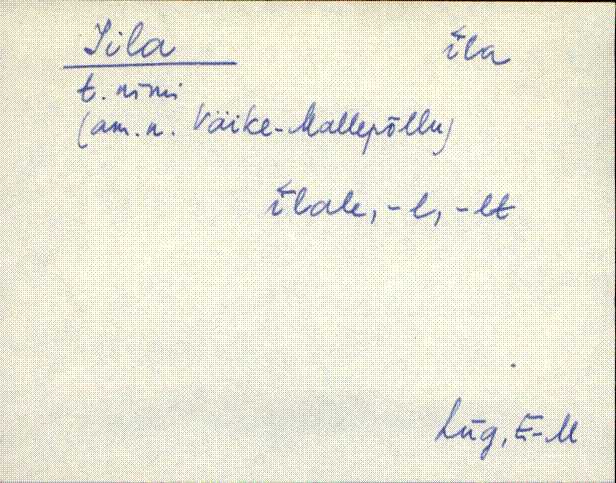 Iila īla
t. nimi
(am. n. Väike-Mallepõllu)
īlale, -l, -lt
Lüg, E-M